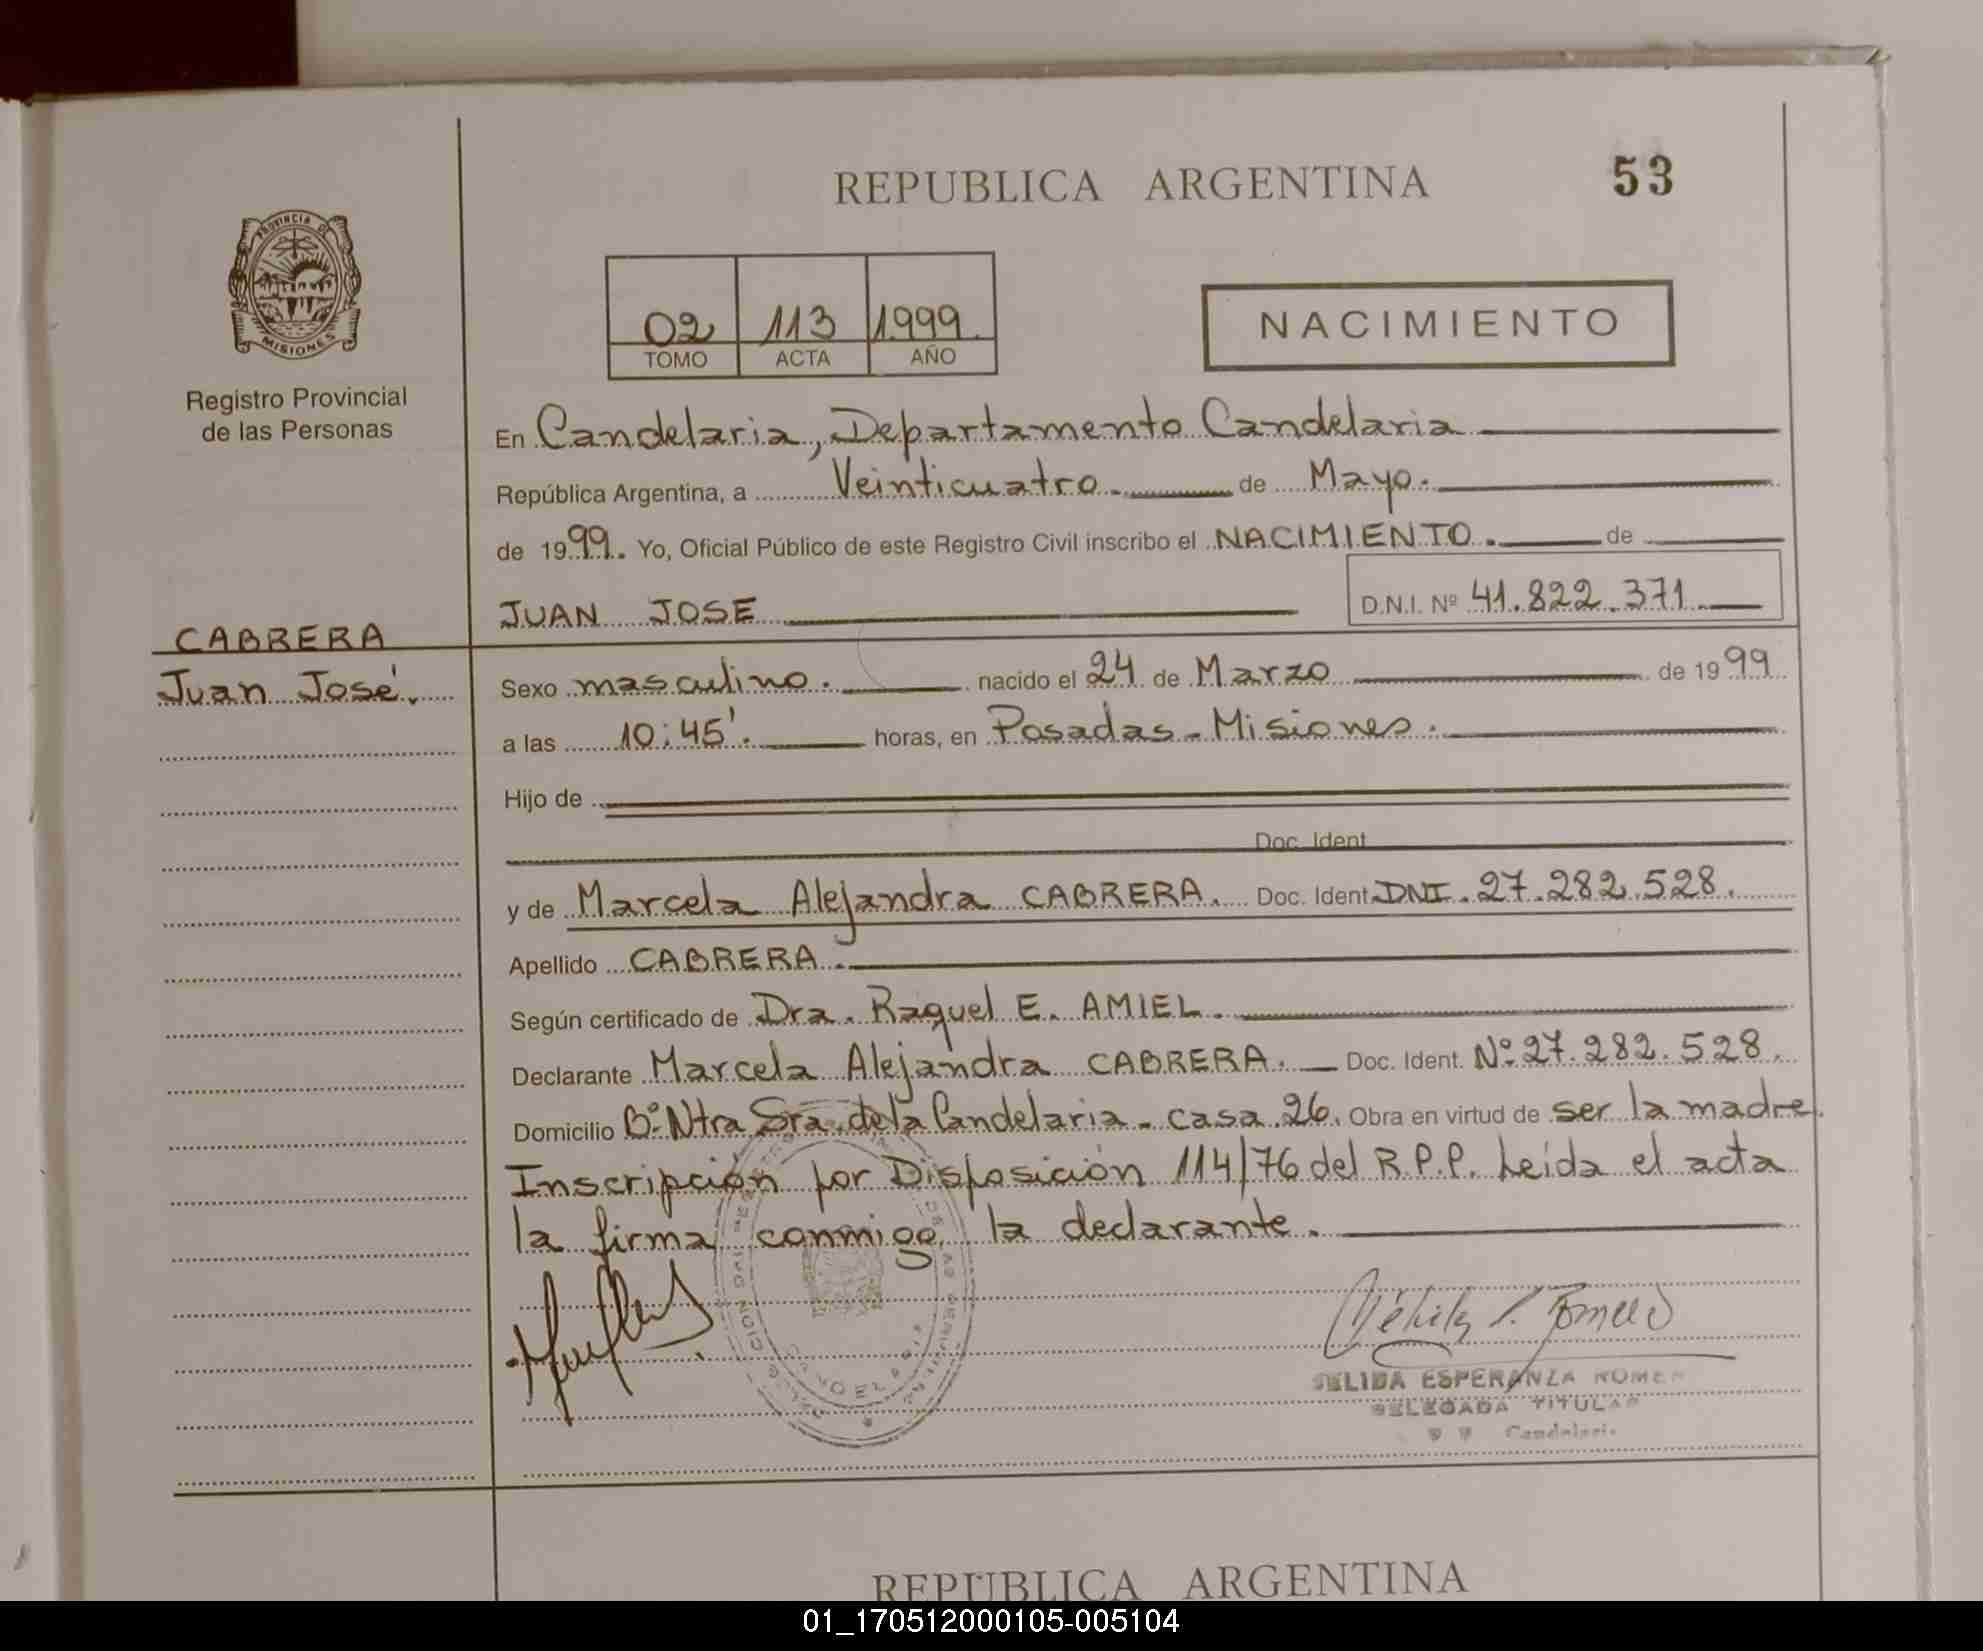 REPUBLICA ARGENTINA
53
PROVINCIA DE
MISIONES
Registro Provincial
de las Personas
02 113 1.999.
TOMO ACTA AÑO
NACIMIENTO
En Candelaria, Departamento Candelaria
República Argentina, a Veinticuatro. de Mayo.
de 1999. Yo, Oficial Público de este Registro Civil inscribo el NACIMIENTO. de
JUAN JOSE D.N.I. Nº 41.822.371.
CABRERA
Juan José.
Sexo masculino. nacido el 24 de Marzo de 1999
a las 10:45'. horas, en Posadas - Misiones.
Hijo de
Doc. Ident
y de Marcela Alejandra CABRERA. Doc. Ident. DNI. 27.282.528.
Apellido CABRERA.
Según certificado de Dra. Raquel E. AMIEL.
Declarante Marcela Alejandra CABRERA. Doc. Ident. Nº 27.282.528.
Domicilio Bº Ntra Sra. de la Candelaria - casa 26. Obra en virtud de ser la madre.
Inscripción por Disposición 114/76 del R.P.P. Leída el acta
la firma conmigo, la declarante.
ESPERANZA
TITULAR
Candelaria
REPUBLICA ARGENTINA
01_170512000105-005104